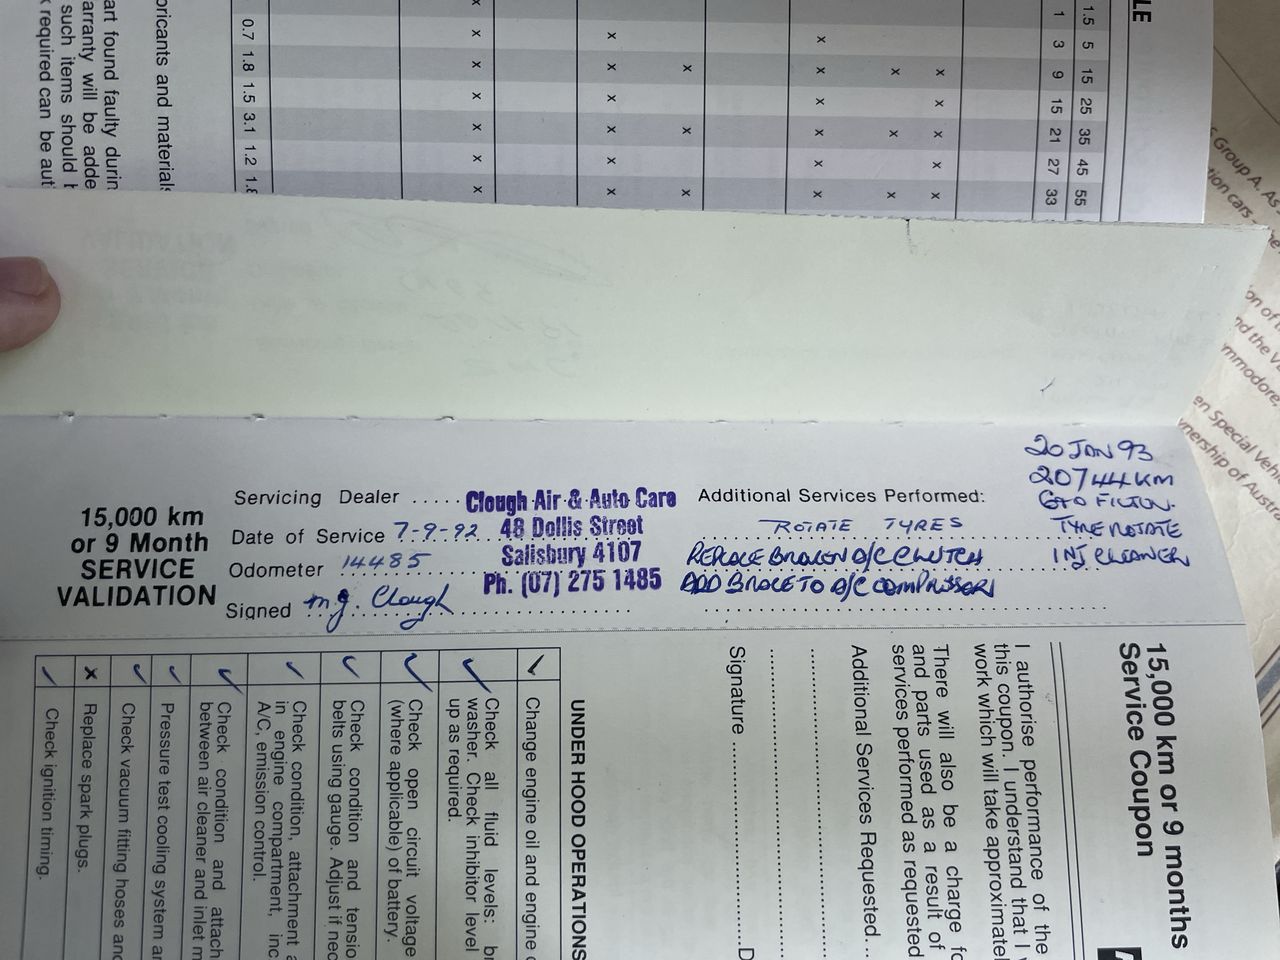 LE
1.5 5 15 25 35 45 55
1 3 9 15 21 27 33
x x x x x x
x x x
x x x x x x
x x x
x x x x x x
x x x x x x x
0.7 1.8 1.5 3.1 1.2
oricants and materials
art found faulty
arranty will be
such items should
required can be
Group A. As
tion cars
on of
nd the
mmodore,
en Special
nership of
15,000 km
or 9 Month
SERVICE
VALIDATION
Servicing Dealer .....
Date of Service 7-9-92
Odometer 14485
Signed m.g. Clough
Clough Air & Auto Care
48 Dollis Street
Salisbury 4107
Ph. (07) 275 1485
Additional Services Performed:
ROTATE TYRES
REPLACE BROKEN A/C CLUTCH
ADD BRACE TO A/C COMPRESSOR
20 JAN 93
20744KM
TYRE ROTATE
INJ CLEANER
15,000 km or 9 months
Service Coupon
I authorise performance of the
this coupon. I understand that I
work which will take
There will also be a charge
and parts used as a result of
services performed as requested
Additional Services Requested...
Signature
UNDER HOOD OPERATIONS
✓ Change engine oil and engine
✓ Check all fluid levels:
washer. Check inhibitor level
up as required.
✓ Check open circuit voltage
(where applicable) of battery.
✓ Check condition and
belts using gauge. Adjust if
✓ Check condition, attachment
in engine compartment,
A/C, emission control.
✓ Check condition and
between air cleaner and inlet
✓ Pressure test cooling system
✓ Check vacuum fitting hoses
x Replace spark plugs.
✓ Check ignition timing.